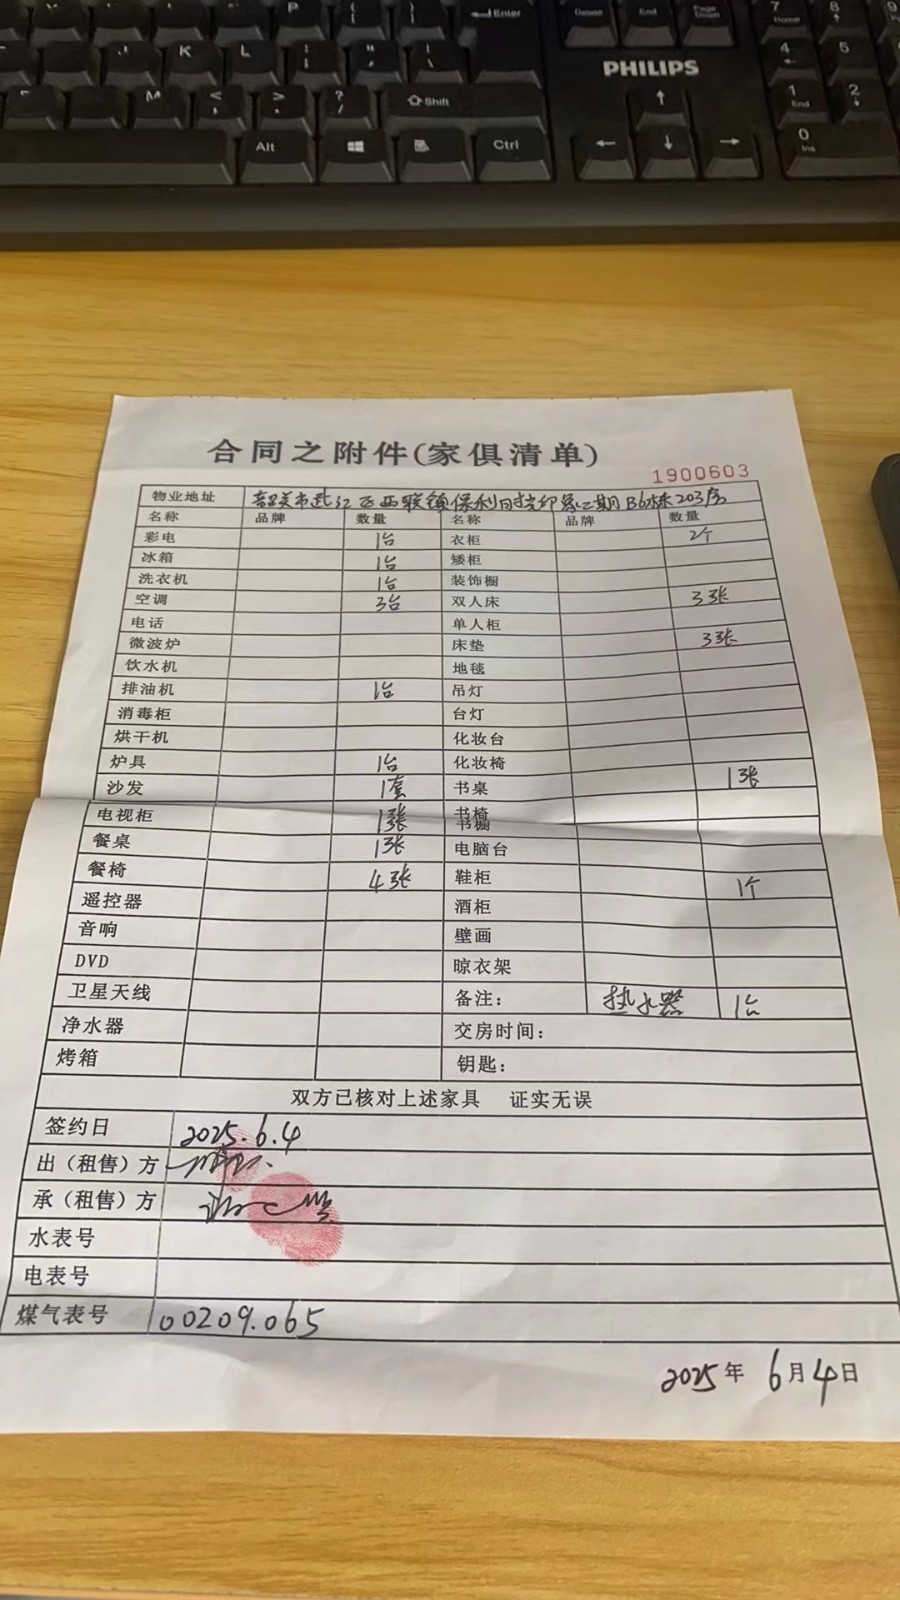 P { [ } ] Enter Delete End Page Down 7 Home 8 9
K L : ; " ' | \ PHILIPS 4 5
M < , > . ? / Shift 1 End 2
Alt Ctrl 0 Ins
合同之附件(家俱清单)
1900603
物业地址 韶关市武江区西联镇保利时光印象二期B6栋203房
名称 品牌 数量 名称 品牌 数量
彩电 1台 衣柜 2个
冰箱 1台 矮柜
洗衣机 1台 装饰橱
空调 3台 双人床 3张
电话 单人柜
微波炉 床垫 3张
饮水机 地毯
排油机 1台 吊灯
消毒柜 台灯
烘干机 化妆台
炉具 1台 化妆椅
沙发 1套 书桌 1张
电视柜 1张 书椅
书橱
餐桌 1张 电脑台
餐椅 4张 鞋柜 1个
遥控器 酒柜
音响 壁画
DVD 晾衣架
卫星天线 备注: 热水器 1台
净水器 交房时间:
烤箱 钥匙:
双方已核对上述家具 证实无误
签约日 2025.6.4
出（租售）方
承（租售）方
水表号
电表号
煤气表号 00209.065
2025年 6月4日